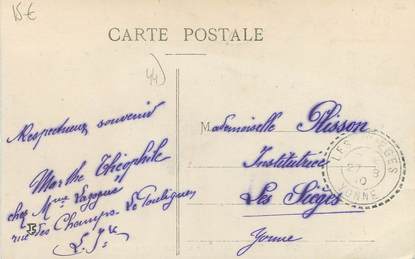 15€
CARTE POSTALE
Respectueux souvenir
Marthe Théophile
chez Mme
rue des Champs. Le Pouliguen
Mademoiselle Plisson
Institutrice
Les Sièges
Yonne
LES SIEGES
YONNE